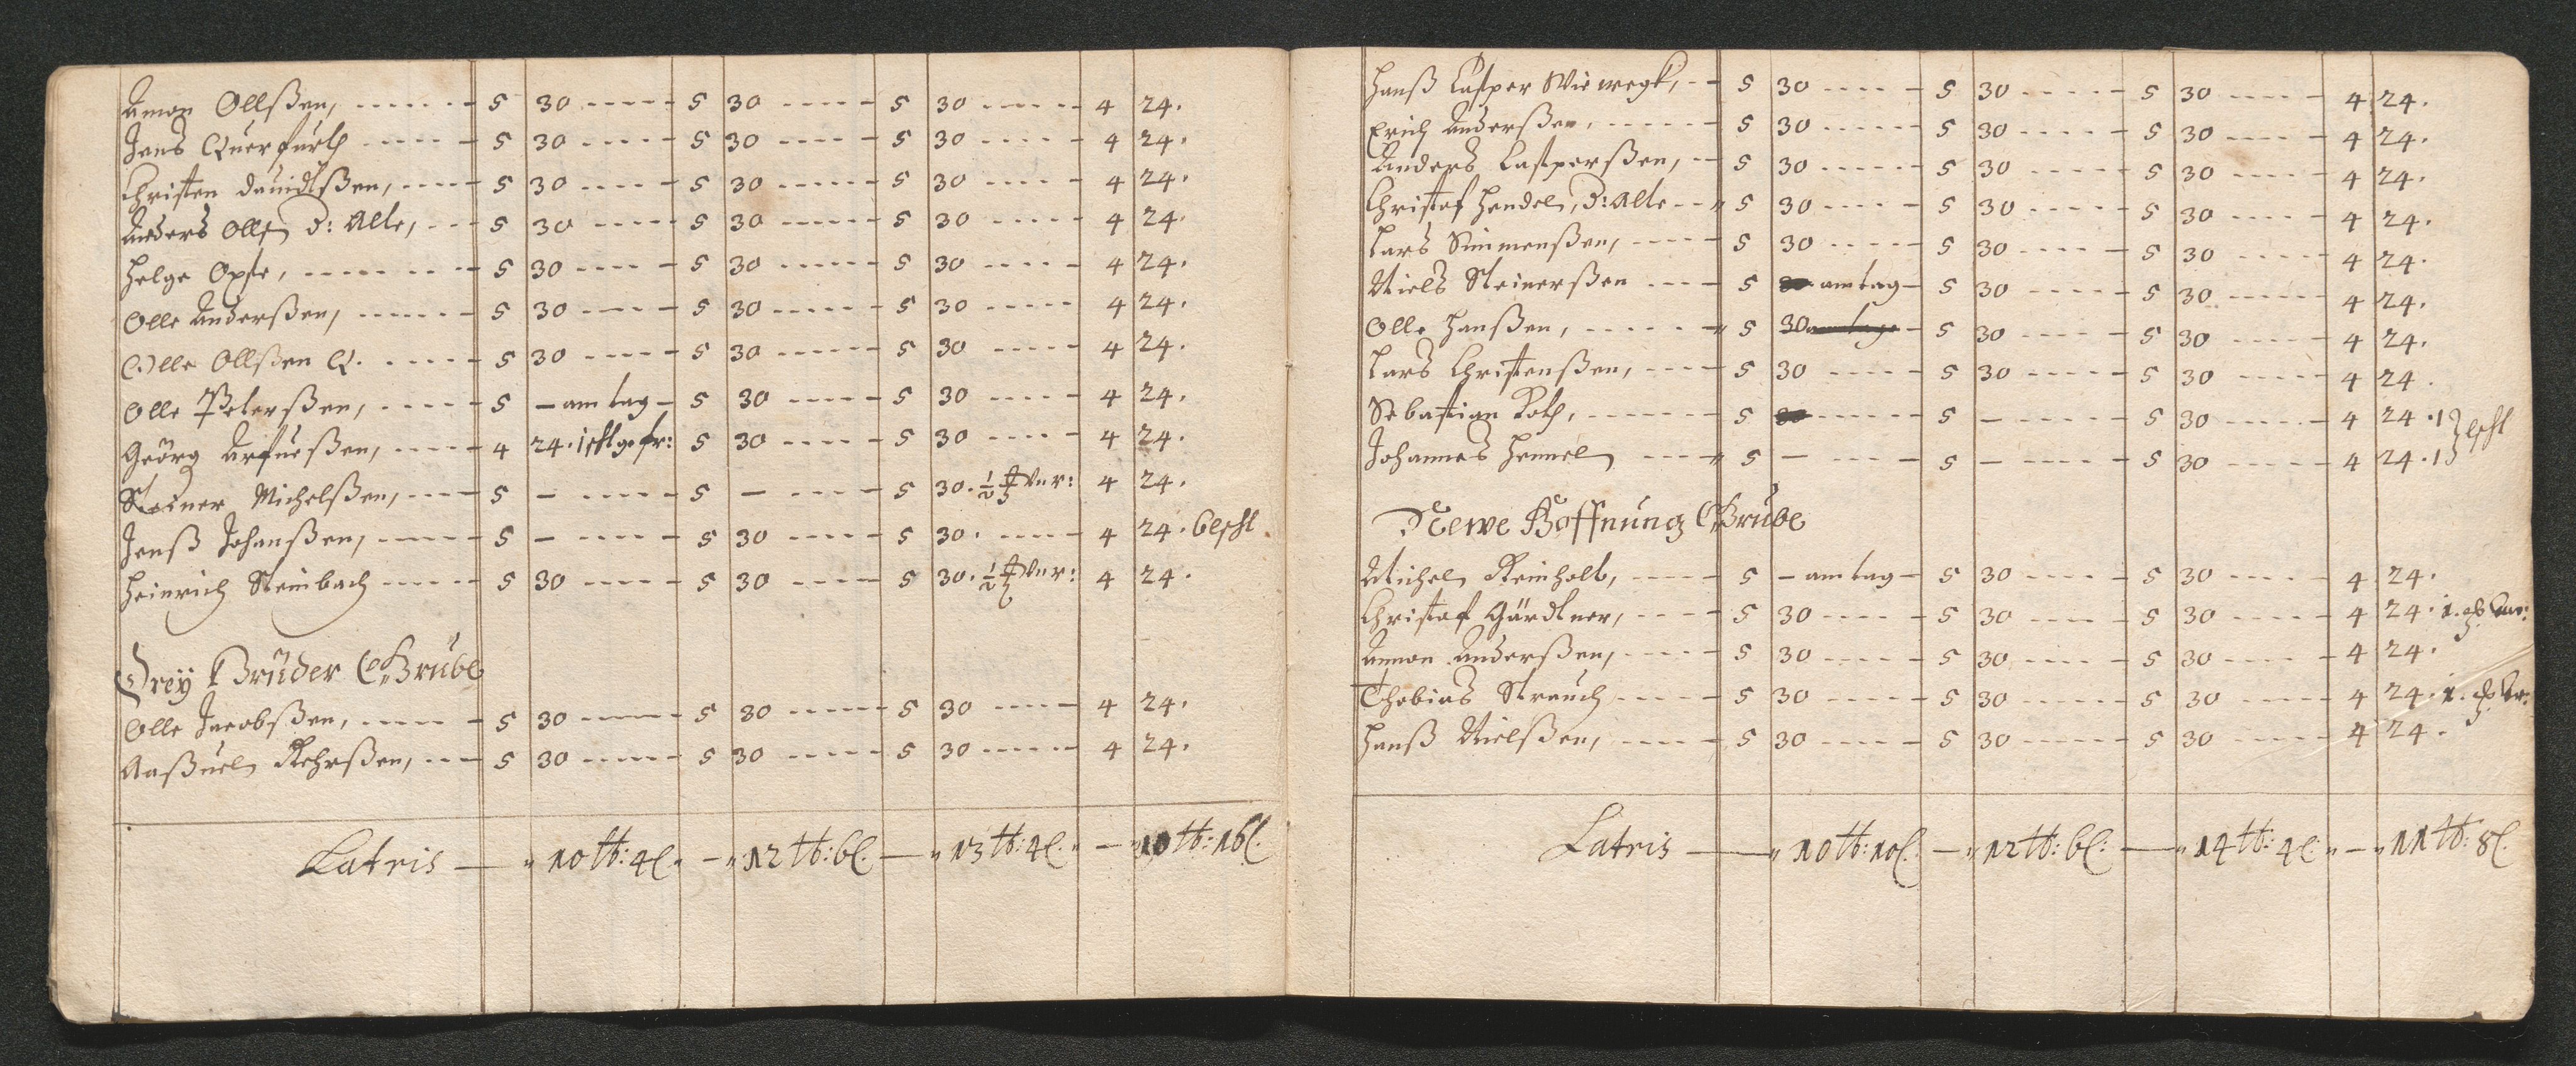 Amon Ollßen, ------ 5 30 ----- 5 30 ----- 5 30 ----- 4 24.
Jens Querfurth ----- 5 30 ----- 5 30 ----- 5 30 ---- 4 24.
Christen Dauidtßen, ---- 5 30 ----- 5 30 ----- 5 30 ---- 4 24.
Anders Olls d: Alte, --- 5 30 ----- 5 30 ----- 5 30 ----- 4 24.
Helge Opste, ------- 5 30 ----- 5 30 ----- 5 30 ----- 4 24.
Olle Anderßen, ------ 5 30 ----- 5 30 ----- 5 30 ----- 4 24.
Olle Ollßen Q. ----- 5 30 ----- 5 30 ----- 5 30 ----- 4 24.
Olle Peterßen, ----- 5 - am tag - 5 30 ----- 5 30 ---- 4 24.
Georg Arfueßen, ---- 4 24. 5 30 ---- 5 30 ---- 4 24.
Steiner Michelßen, ---- 5 - ----- 5 - ---- 5 30. ½ 4 24.
Jenß Johanßen, ----- 5 - ----- 5 30 ----- 5 30. ---- 4 24. 6 schl
Heinrich Steinbach ----- 5 30 ----- 5 30 ---- 5 30. ½ 4 24.
Drey Brüder Grube
Olle Jacobßen, ----- 5 30 ----- 5 30 ----- 5 30 ---- 4 24.
Aaßuel Rehrßen, --- 5 30 ----- 5 30 ----- 5 30 ----- 4 24.
Latris — 10 tb: 4 ß. — 12 tb: 6 ß. — 13 tb: 4 ß. — 10 tb: 16 ß.
Hanß Casper Wiewegk, -- 5 30 ----- 5 30 ----- 5 30 ----- 4 24.
Erich Anderßen, ------ 5 30 ----- 5 30 ----- 5 30 ----- 4 24.
Anders Casperßen, -- 5 30 ----- 5 30 ----- 5 30 ----- 4 24.
Christof Hendel, d: Alte -- 5 30 ---- 5 30 ----- 5 30 ----- 4 24.
Lars Simmenßen, ---- 5 30 ----- 5 30 ----- 5 30 ---- 4 24.
Niels Steinerßen ---- 5 30 am tag - 5 30 ----- 5 30 ----- 4 24.
Olle Hanßen, ------ 5 30 am tage - 5 30 ----- 5 30 ----- 4 24.
Lars Christenßen, ---- 5 30 ----- 5 30 ----- 5 30 ----- 4 24.
Sebastian Roth, ------ 5 30 ----- 5 - ----- 5 30 ----- 4 24. 1
Johannes Hennel ---- 5 - ----- 5 - ----- 5 30 ----- 4 24. 1 schl
Newe Hoffnung Grube
Michel Reinholt, ---- 5 - am tag - 5 30 ----- 5 30 ---- 4 24.
Christof Gärdtner, ---- 5 30 ---- 5 30 ----- 5 30 ----- 4 24. 1.
Amon Anderßen, ---- 5 30 ----- 5 30 ----- 5 30 ----- 4 24.
Thobias Strauch ----- 5 30 ----- 5 30 ----- 5 30 ----- 4 24. 1.
Hanß Nielßen, ----- 5 30 ----- 5 30 ----- 5 30 ----- 4 24.
Latris — 10 tb: 10 ß. — 12 tb: 6 ß: — 14 tb: 4 ß — 11 tb: 8 ß.